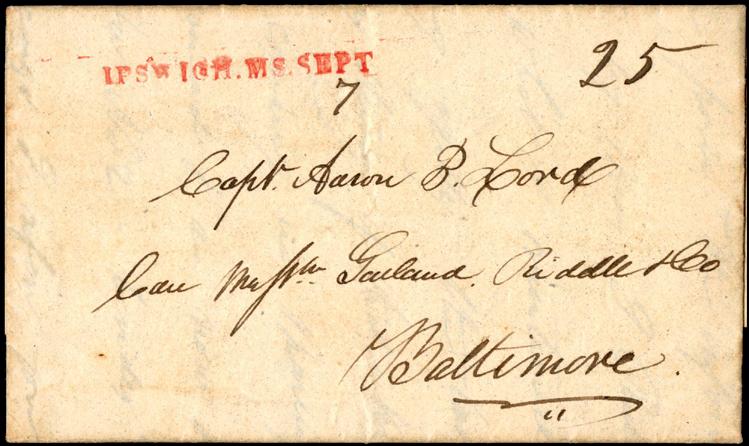 IPSWICH.MS.SEPT
7
25
Capt. Aaron P. Lord
Care Messrs Garland, Riddle & Co
Baltimore.
"